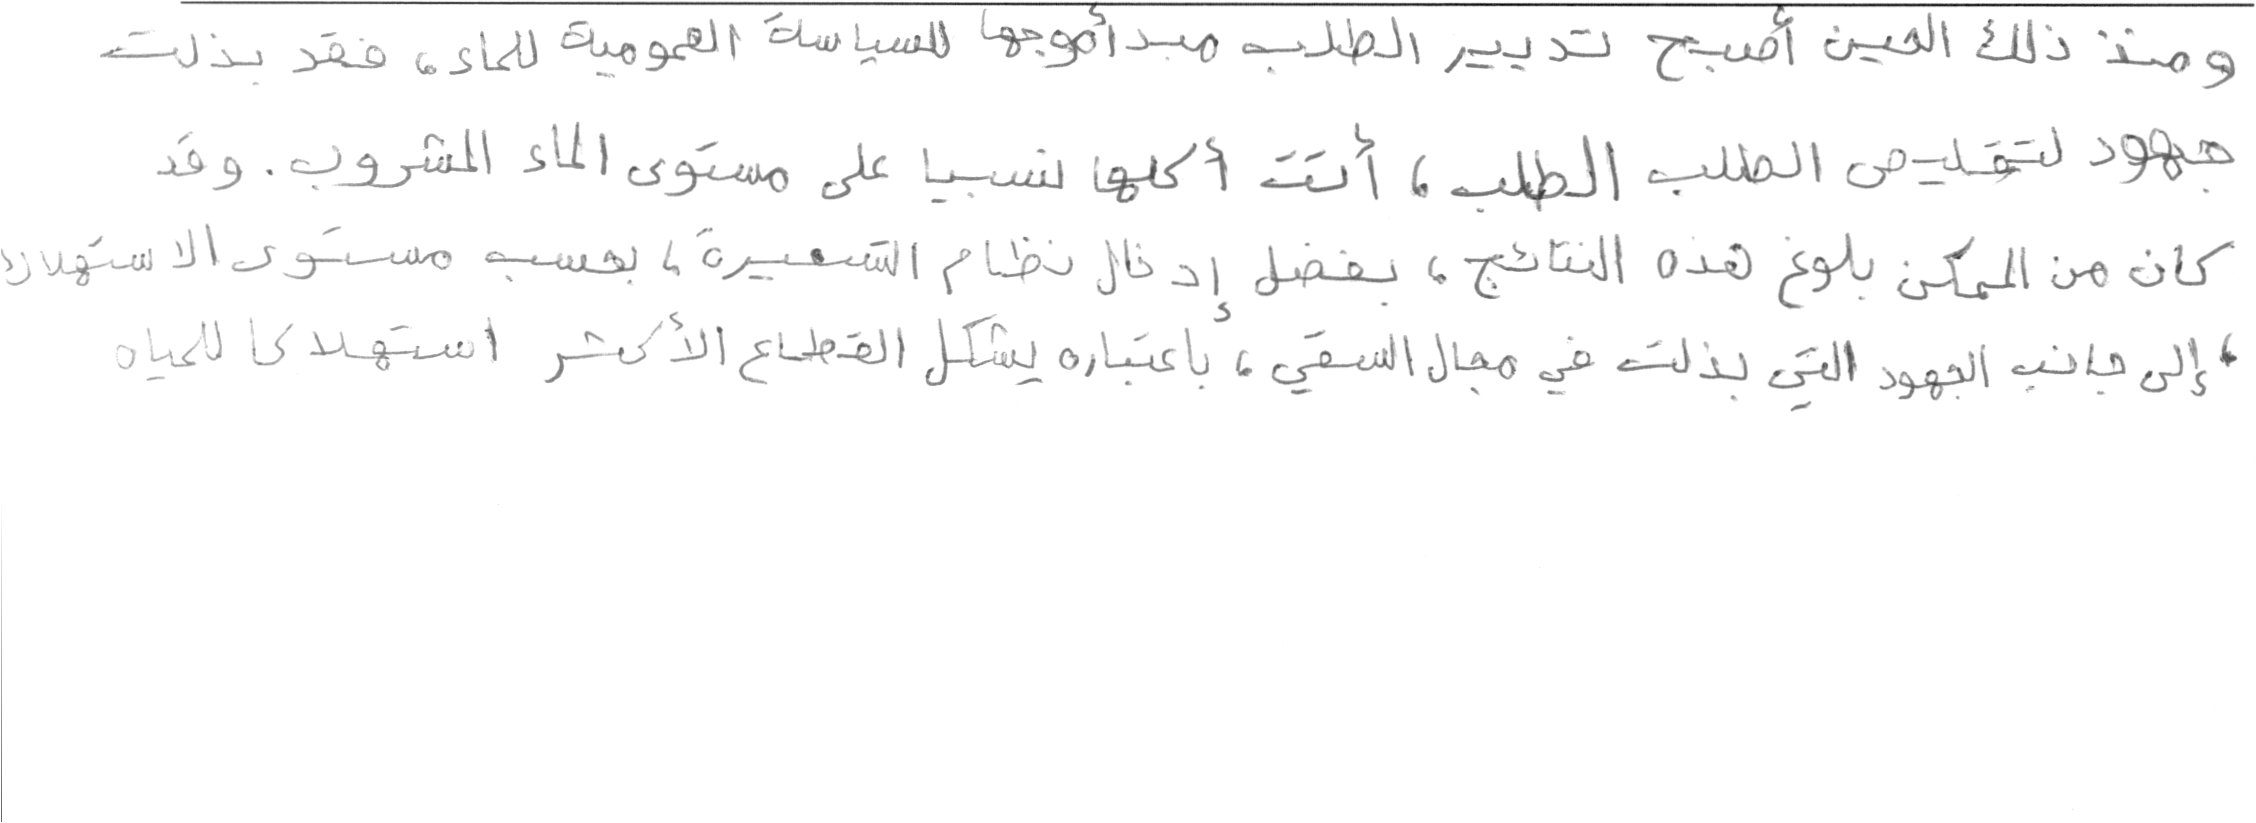 ومنذ ذلك الحين أصبح تدبير الطلب مبدأ موجها للسياسة العمومية للماء، فقد بذلت
جهود لتقليص الطلب الطلب، أتت أكلها نسبيا على مستوى الماء المشروب. وقد
كان من الممكن بلوغ هذه النتائج، بفضل إدخال نظام التسعيرة، بحسب مستوى الاستهلاك
، إلى جانب الجهود التي بذلت في مجال السقي، باعتباره يشكل القطاع الأكثر استهلاكا للمياه